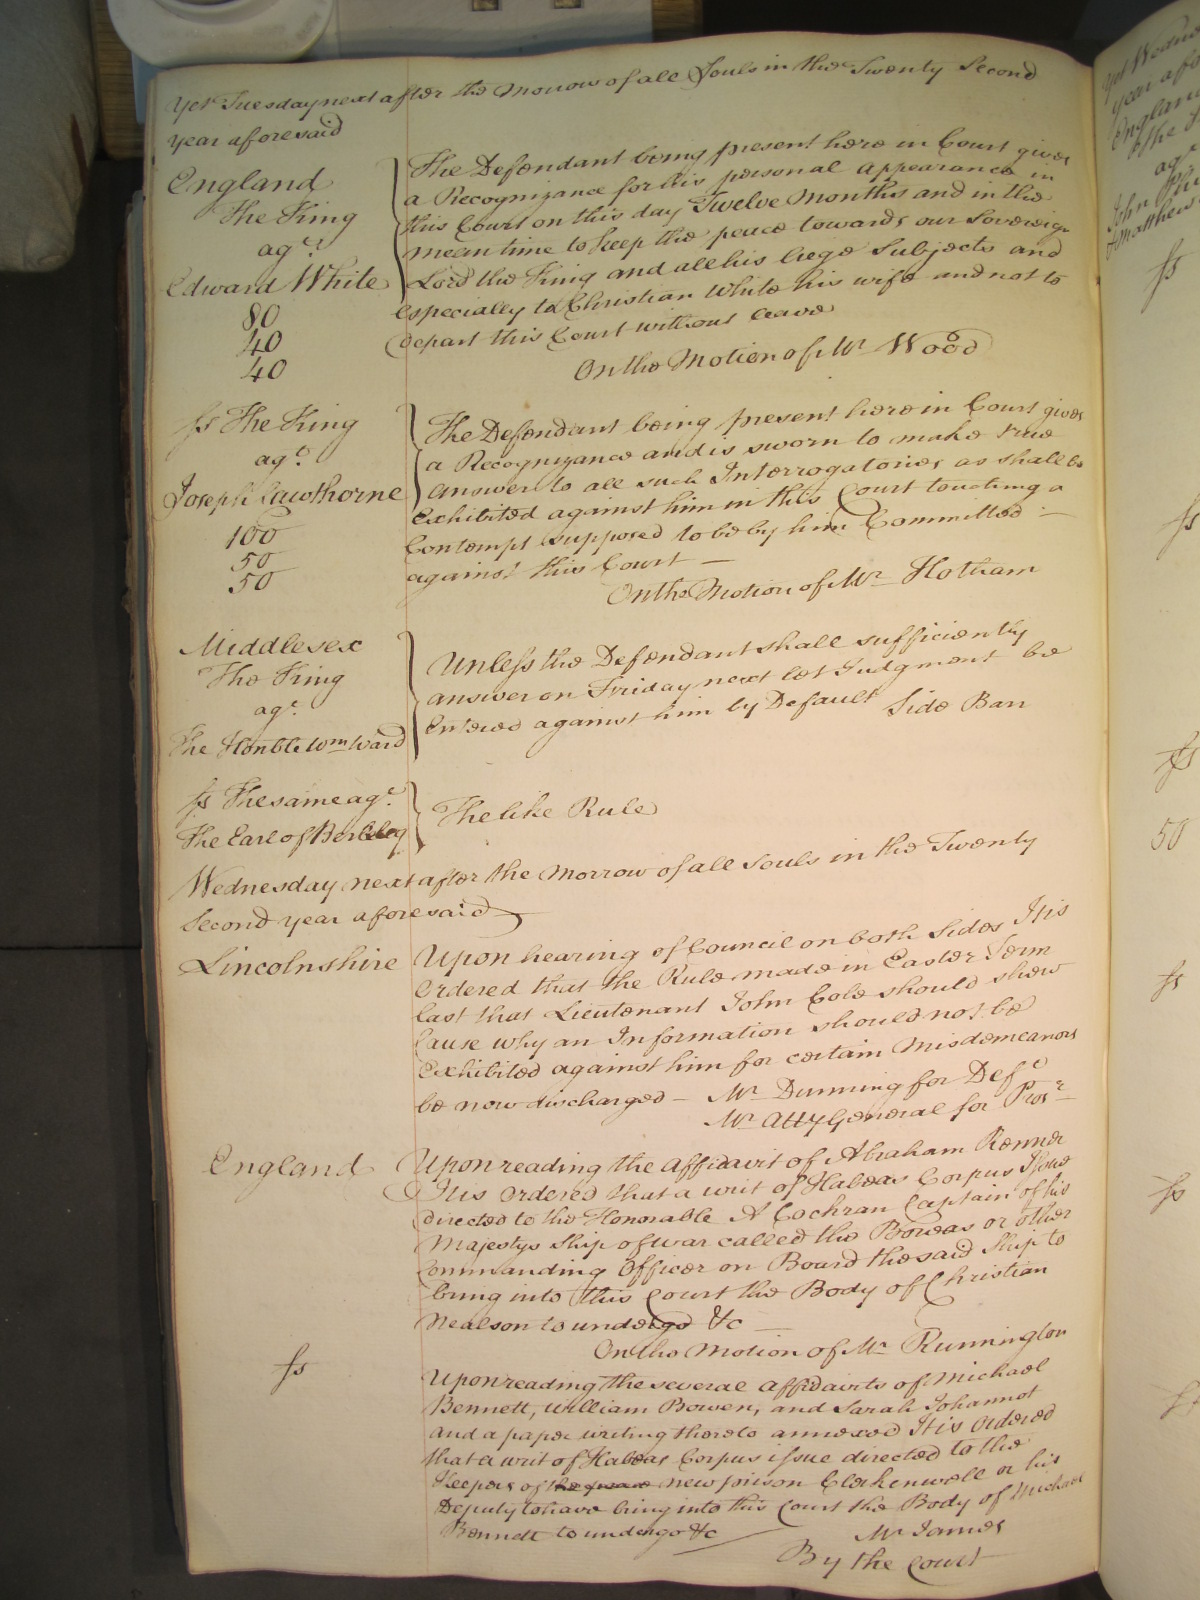 Yet Tuesday next after the Morrow of all Souls in the Twenty Second
year aforesaid
England
The King
agt.
Edward White
80
40
40
The Defendant being present here in Court gives
a Recognizance for his personal appearance in
this Court on this day Twelve Months and in the
mean time to keep the peace towards our Sovereign
Lord the King and all his liege Subjects and
especially to Christian White his wife and not to
depart this Court without leave
On the Motion of Mr. Wood
ss The King
agt.
Joseph Cawthorne
100
50
50
The Defendant being present here in Court gives
a Recognizance and is sworn to make true
answer to all such Interrogatories as shall be
Exhibited against him in this Court touching a
Contempt supposed to be by him Committed
against this Court —
On the Motion of Mr. Hotham
Middlesex
The King
agt.
The Honble Wm Ward
Unless the Defendant shall sufficiently
answer on Friday next let Judgment be
Entered against him by Default Side Barr
ss The same agt.
The Earl of Berkley
The like Rule
Wednesday next after the Morrow of all Souls in the Twenty
Second year aforesaid
Lincolnshire
Upon hearing of Council on both Sides It is
Ordered that the Rule made in Easter Term
last that Lieutenant John Cole should shew
Cause why an Information should not be
Exhibited against him for certain Misdemeanors
be now discharged — Mr. Dunning for Deft.
Mr. Atty General for Prosr.
England
Upon reading the affidavit of Abraham Renner
It is Ordered that a writ of Habeas Corpus Issue
directed to the Honorable A Cochran Captain of his
Majestys Ship of war called the Boreas or other
Commanding Officer on Board the said Ship to
bring into this Court the Body of Christian
Nealson to undergo &c —
On the Motion of Mr. Runnington
ss
Upon reading the several affidavits of Michael
Bennett, William Bowen, and Sarah Johannot
and a paper writing thereto annexed It is Ordered
that a writ of Habeas Corpus issue directed to the
Keeper of new prison Clerkenwell or his
Deputy to have bring into this Court the Body of Michael
Bennett to undergo &c
Mr. James
By the Court